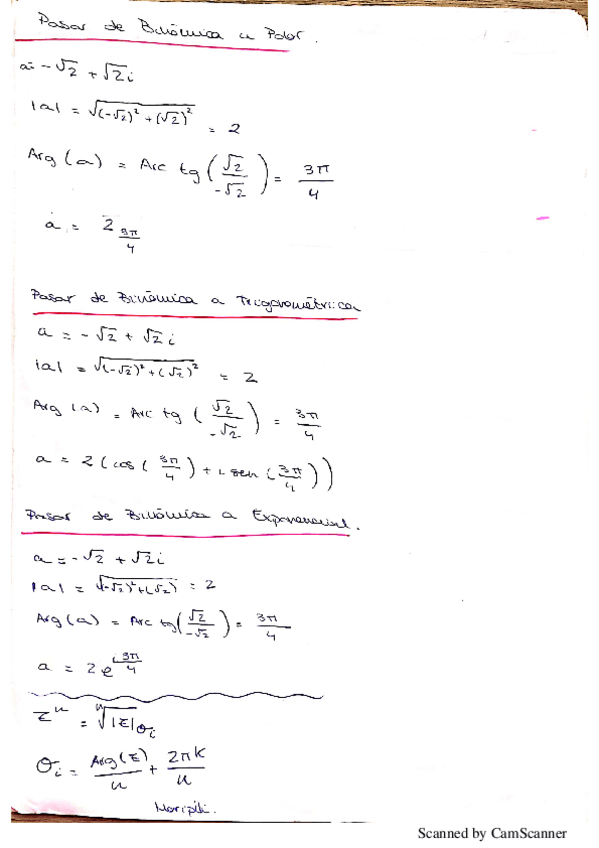 Pasar de Binómica a Polar.
a = -√2 + √2 i
|a| = √((-√2)² + (√2)²) = 2
Arg (a) = Arc tg (√2 / -√2) = 3π/4
a = 2 3π/4
Pasar de Binómica a Trigonométrica
a = -√2 + √2 i
|a| = √((-√2)² + (√2)²) = 2
Arg (a) = Arc tg (√2 / -√2) = 3π/4
a = 2 (cos (3π/4) + i sen (3π/4))
Pasar de Binómica a Exponencial.
a = -√2 + √2 i
|a| = √((-√2)² + (√2)) = 2
Arg (a) = Arc tg (√2 / -√2) = 3π/4
a = 2 e^(i 3π/4)
Z^n = ⁿ√|Z| σi
σi = Arg(Z)/n + 2πK/n
Scanned by CamScanner